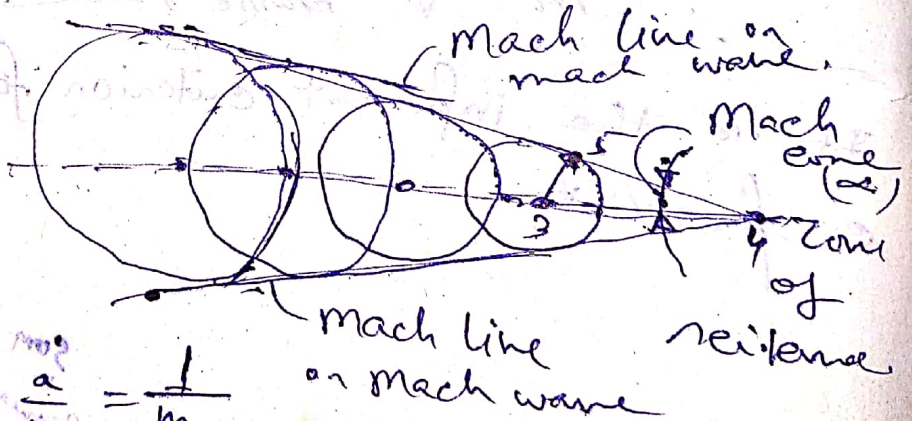 Mach line or
mach wave.
Mach
cone
(α)
5
3
4
Zone
of
Mach line
or Mach wave
a = 1
m